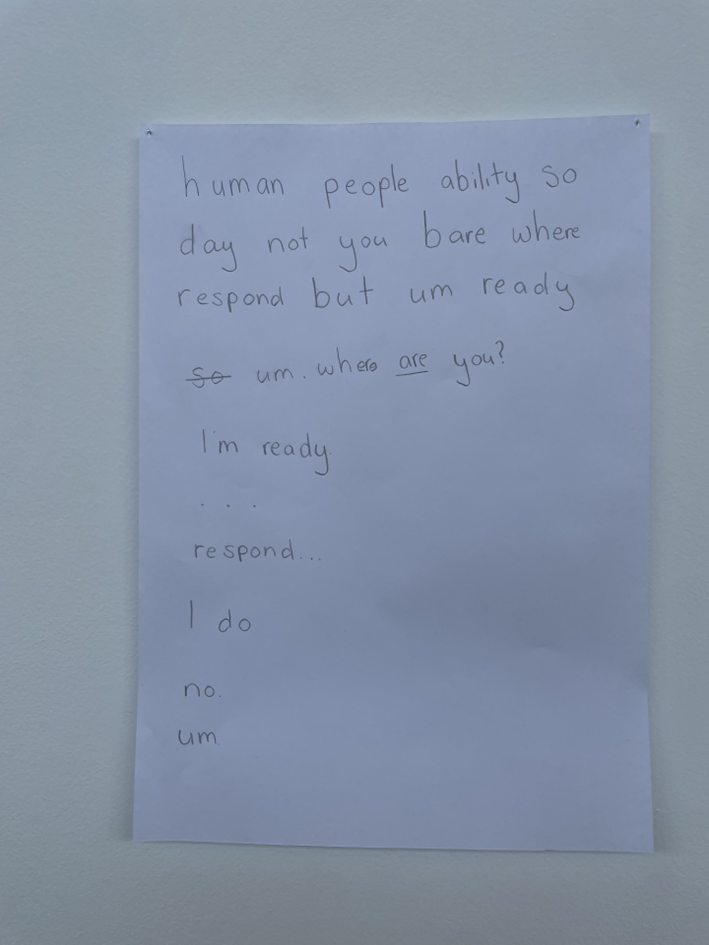 human people ability so
day not you bare where
respond but um ready
so um. where are you?
I'm ready.
. . .
respond...
I do
no.
um